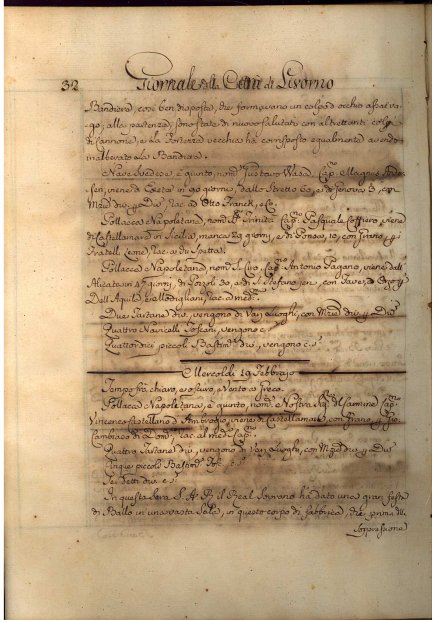 32 Giornale della Città di Livorno
Bandiera, così ben disposta, che formavano un colpo d'occhio assai va-
go; alla partenza, sono state di nuovo salutati con altrettanti colpi
di Cannone, e la Fortezza vecchia ha corrisposto egualmente avendo
inalberato la Bandiera.
Nave Svedese, è quinto, nom.ª Gustavo Wasa, Cap.no Magnus Ande-
sen, viene da in 90 giorni, dallo Stretto 60, e da Genova 3, con
Mrd div. p Div. rac. ad Otto Franck, e C.
Pollacca Napoletana, nom.ª S.S. Trinità Cap.no Pasquale viene
di Castellamare in Sicilia, manca 29 giorni, e da 10, con grano p i
Fratelli rac. a
Pollacca Napoletana, nom.ª S. Ciro, Cap.no Antonio Pagano, viene dall'
Alicata in 47 giorni, di 30, e di S. Stefano con Fave, ed Orzo p
Dell'Aquila, e rac. al med.
Due Tartane div., vengono di Varj Luoghi, con Mrd div. p Div.
Quattro Navicelli Toscani, vengono c.s
Quattordici piccoli Bastim.ti div., vengono c.s
Mercoldì 19 Febbrajo
Tempo fra chiaro, e oscuro, e Vento a Greco.
Pollacca Napoletana, è quinto, nom.ª Nostra Sig.ra del Carmine Cap.no
Vincenzo Castellano d'Ambrogio, viene da Castellamare, con grano p
Cambiaso di rac. al med. Cap.no
Quattro Tartane div., vengono di Varj Luoghi, con Mrd div. p Div.
Cinque piccoli Bastim.ti c.s
Sei detti div. c.s
In questa Sera S. A. R. il Real Sovrano ha dato una gran festa
di Ballo in una vasta Sala, in questo corpo di fabbrica, che prima
Soppressione